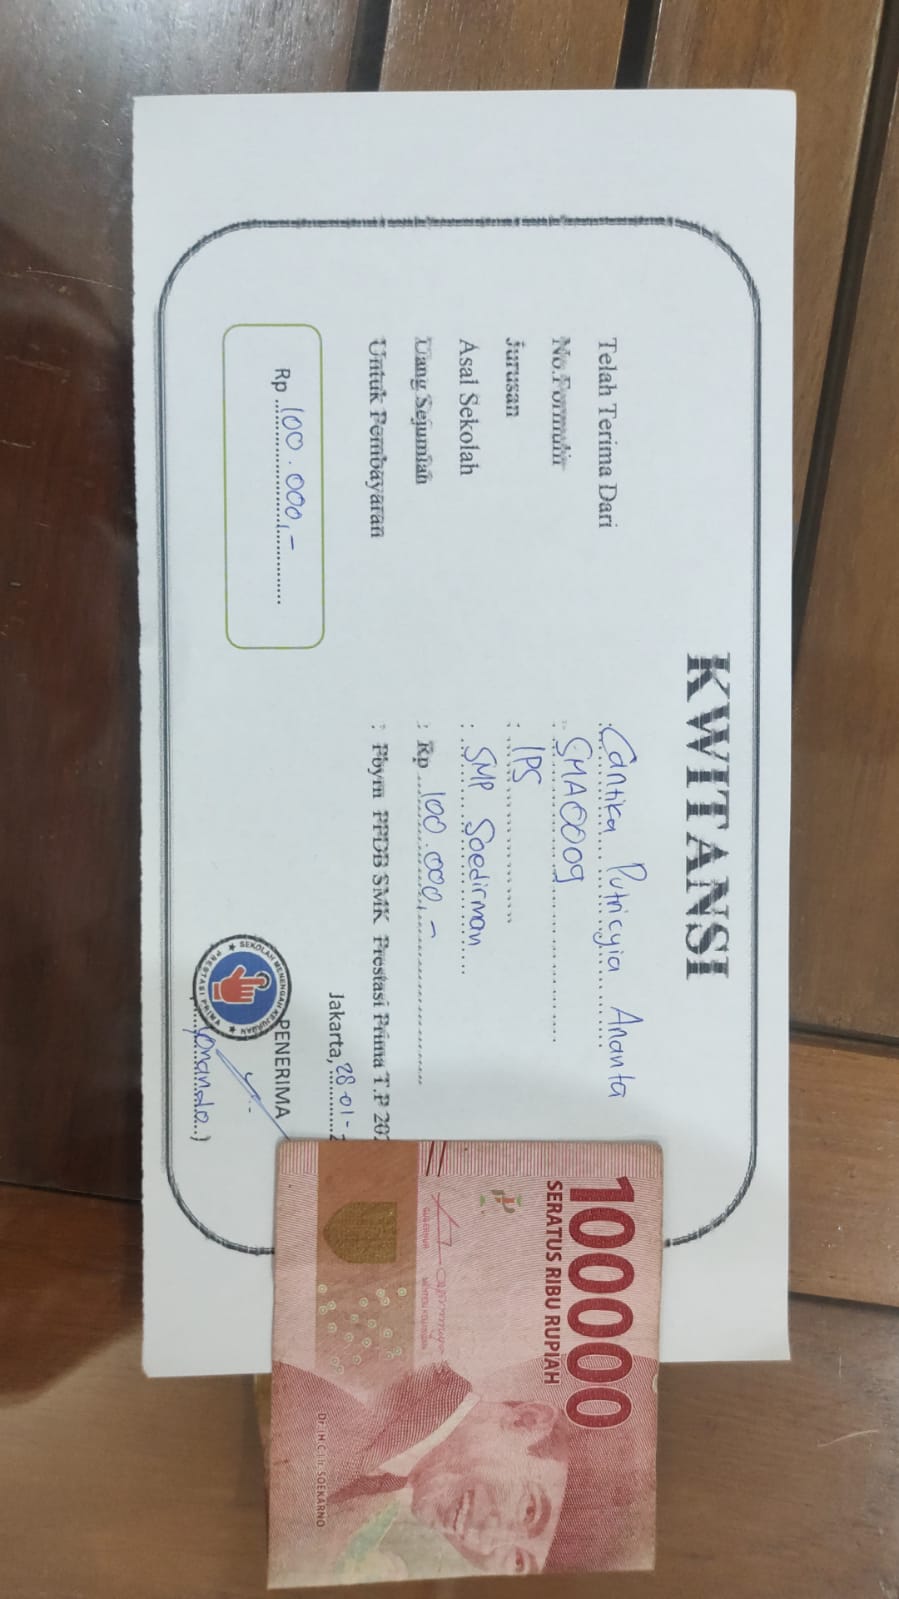 KWITANSI
Telah Terima Dari : Cantika Putricyia Ananta
No.Formulir : SMA0009
Jurusan : IPS
Asal Sekolah : SMP Soedirman
Uang Sejumlah : Rp 100.000,-
Untuk Pembayaran : Pbyrn PPDB SMK Prestasi Prima T.P 202
Jakarta, 28-01-2
Rp 100.000,-
PENERIMA
SEKOLAH MENENGAH KEJURUAN
PRESTASI PRIMA
100000
SERATUS RIBU RUPIAH
GUBERNUR MENTERI KEUANGAN
Dr. (H.C.) Ir. SOEKARNO